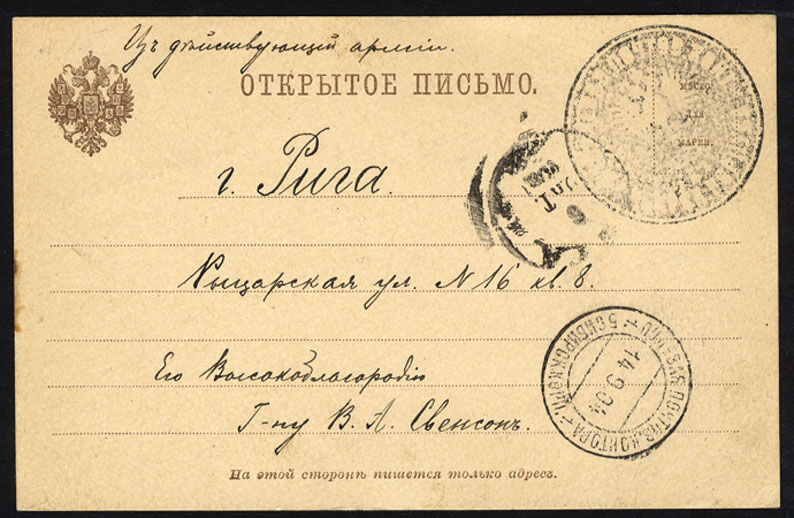 Изъ действующей армiи.
ОТКРЫТОЕ ПИСЬМО.
МѢСТО
ДЛЯ
МАРКИ.
г. Рига.
Рыцарская ул. N 16 кв. 8.
Его Высокоблагородiю
Г-ну В. А. Свенсонъ.
14 9 04
ПОЧТОВ. КОНТОРА
5 СИБИРСК. КОРП.
На этой сторонѣ пишется только адресъ.